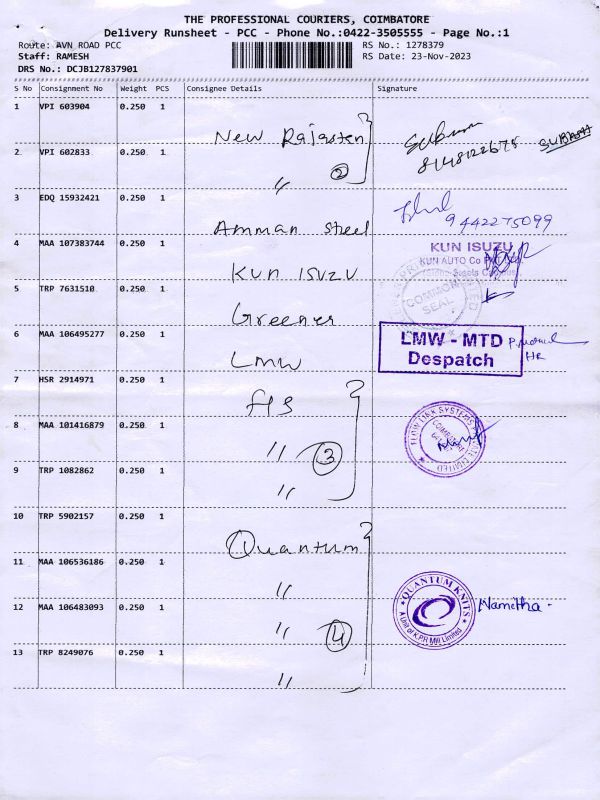 THE PROFESSIONAL COURIERS, COIMBATORE
Delivery Runsheet - PCC - Phone No.:0422-3505555 - Page No.:1
Route: AVN ROAD PCC
RS No.: 1278379
Staff: RAMESH
RS Date: 23-Nov-2023
DRS No.: DCJB127837901
S No Consignment No Weight PCS Consignee Details Signature
1 VPI 603904 0.250 1 New Rajasten
8148122678 SUBASH
2 VPI 602833 0.250 1 " 2
3 EDQ 15932421 0.250 1 Amman steel 9442275099
4 MAA 107383744 0.250 1 KUN ISUZU
KUN ISUZU
KUN AUTO Co
COMMON SEAL
5 TRP 7631510 0.250 1 Greener
6 MAA 106495277 0.250 1 LMW
LMW - MTD
Despatch
HR
7 HSR 2914971 0.250 1 HS
8 MAA 101416879 0.250 1 " 3
FLOW LINK SYSTEMS PRIVATE LIMITED
9 TRP 1082862 0.250 1 "
10 TRP 5902157 0.250 1 Quantum
11 MAA 106536186 0.250 1 "
QUANTUM KNITS
A Unit of K.P.R Mill Limited
Namitha
12 MAA 106483093 0.250 1 " 4
13 TRP 8249076 0.250 1 "